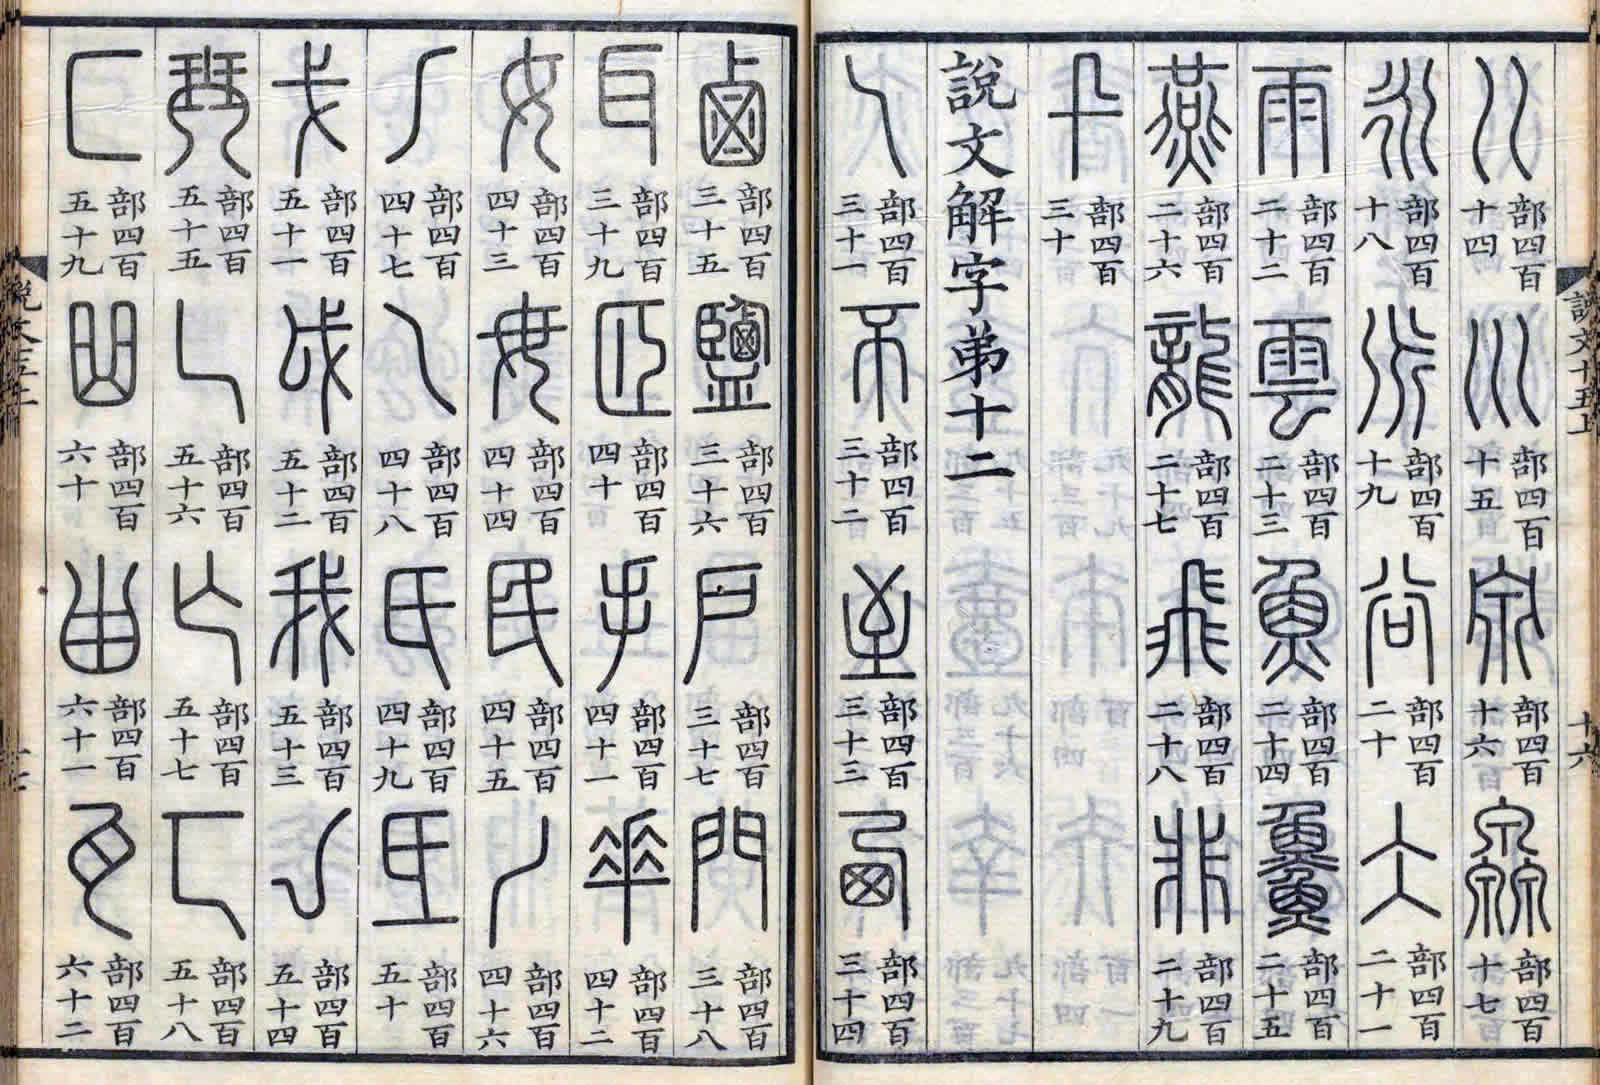 說文十五上 十六
巜部四百十四 川部四百十五 泉部四百十六 灥部四百十七
永部四百十八 𠂢部四百十九 谷部四百二十 仌部四百二十一
雨部四百二十二 雲部四百二十三 魚部四百二十四 𩺰部四百二十五
燕部四百二十六 龍部四百二十七 飛部四百二十八 非部四百二十九
卂部四百三十
說文解字弟十二
𠃉部四百三十一 不部四百三十二 至部四百三十三 西部四百三十四
鹵部四百三十五 鹽部四百三十六 戶部四百三十七 門部四百三十八
耳部四百三十九 𦣞部四百四十 手部四百四十一 𠦬部四百四十二
女部四百四十三 毋部四百四十四 民部四百四十五 丿部四百四十六
𠂆部四百四十七 乁部四百四十八 氏部四百四十九 氐部四百五十
戈部四百五十一 戉部四百五十二 我部四百五十三 亅部四百五十四
珡部四百五十五 乚部四百五十六 亾部四百五十七 匸部四百五十八
匚部四百五十九 曲部四百六十 甾部四百六十一 瓦部四百六十二